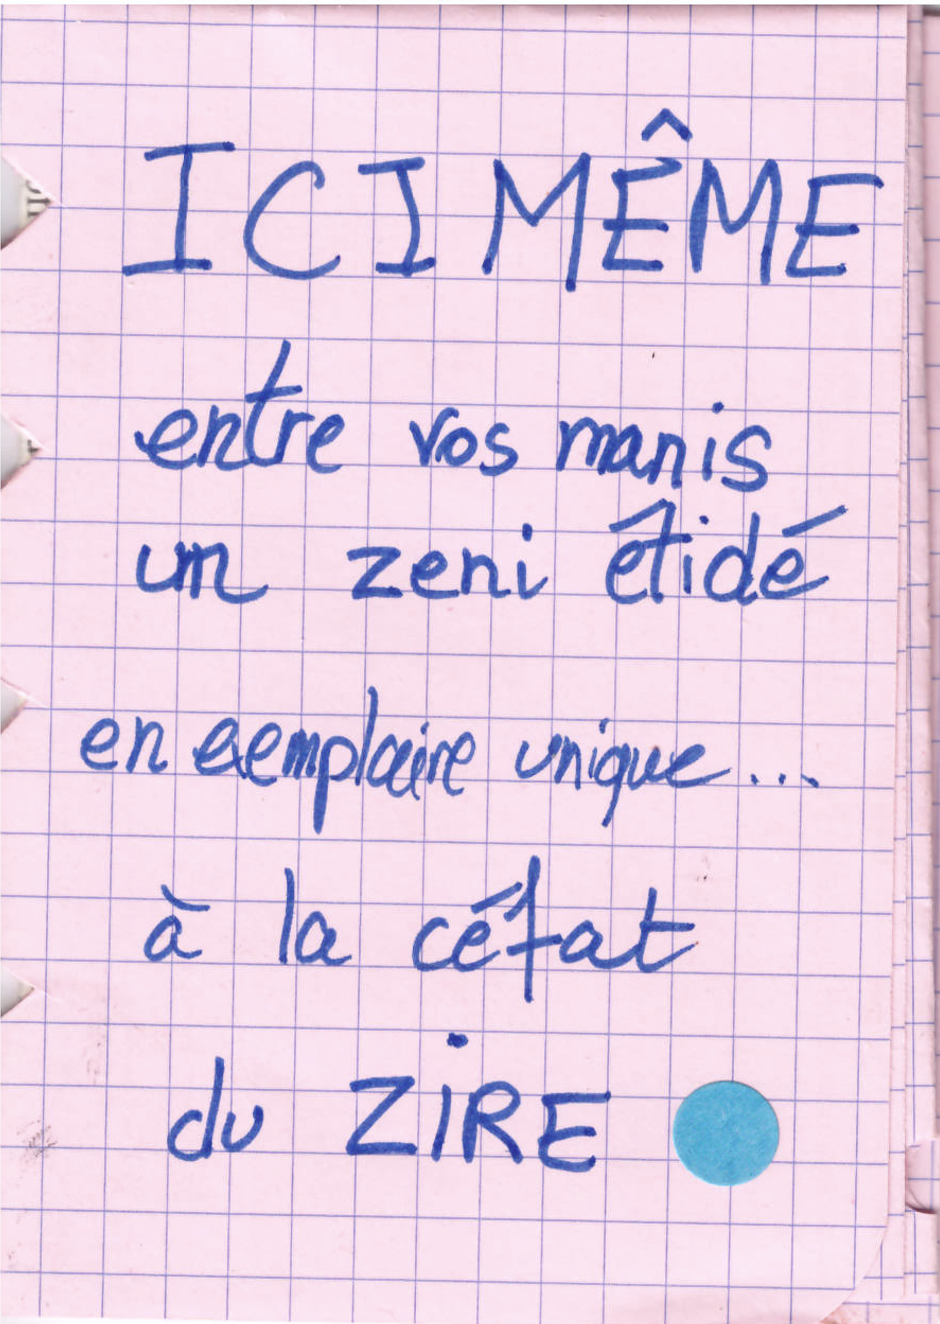 ICI MÊME
entre vos manis
un zeni êtidé
en exemplaire unique...
à la céfat
du ZiRE